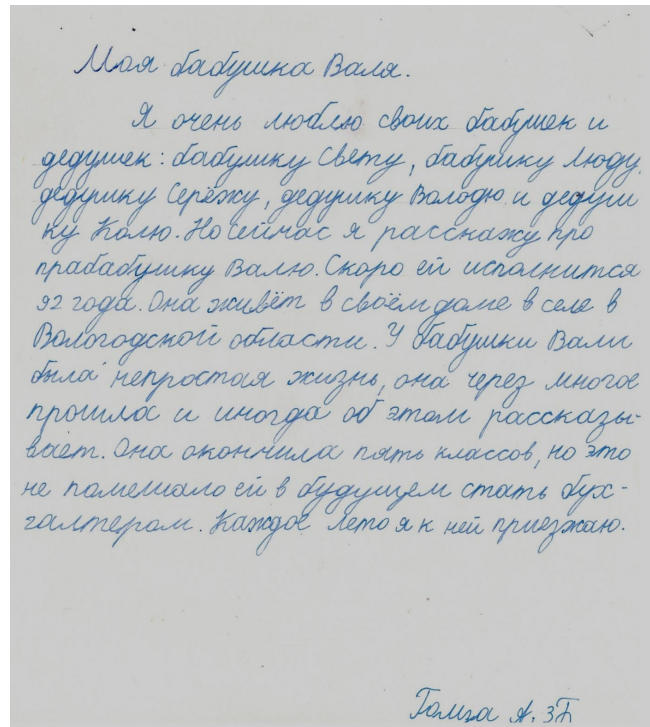 Моя бабушка Валя.
Я очень люблю своих бабушек и
дедушек: бабушку Свету, бабушку Люду,
дедушку Серёжу, дедушку Володю и дедуш
ку Колю. Но сейчас я расскажу про
прабабушку Валю. Скоро ей исполнится
92 года. Она живёт в своём доме в селе в
Вологодской области. У бабушки Вали
была непростая жизнь, она через многое
прошла и иногда об этом рассказы-
вает. Она окончила пять классов, но это
не помешало ей в будущем стать бух-
галтером. Каждое лето я к ней приезжаю.
А. 3Б